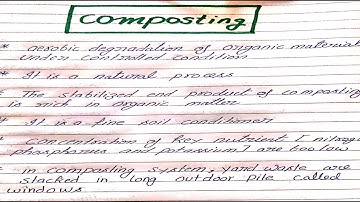 Composting
* Aerobic degradation of organic material
under controlled condition
* It is a natural process
* The stabilized end product of composting
is rich in organic matter
* It is a fine soil conditioner
* Concentration of key nutrient [ nitrogen
phosphorus and potassium] are too low
* in composting system, yard waste are
stacked in long outdoor pile called
windows